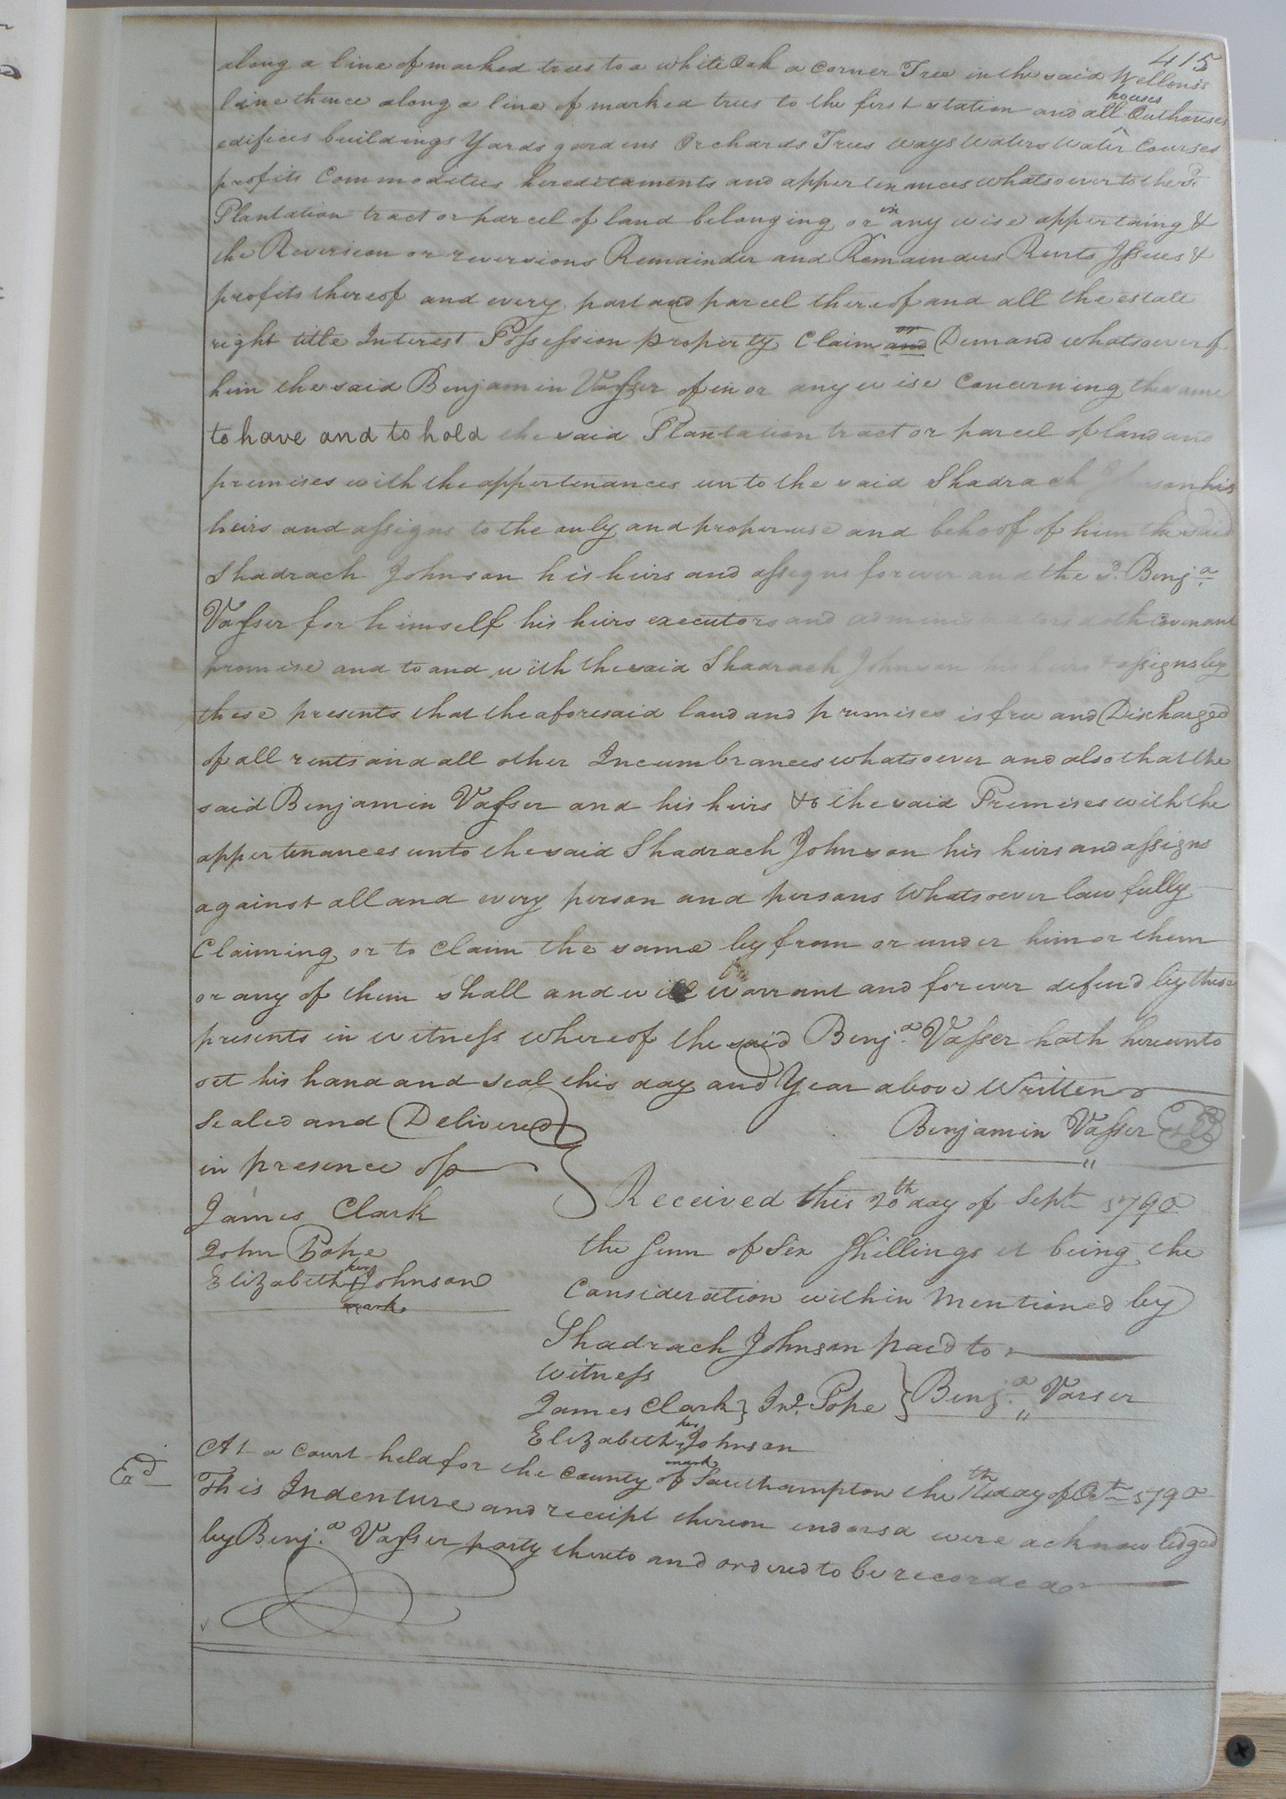 415
along a line of marked trees to a white Oak a corner Tree in the said Wellons's
line thence along a line of marked trees to the first station and all houses Outhouses
edifices buildings Yards gardens Orchards Trees ways waters water Courses
profits Commodities hereditaments and appertenances whatsoever to the sd.
Plantation tract or parcel of land belonging or in any wise appertaing &
the Reversion or reversions Remainder and Remainders Rents Issues &
profits thereof and every part and parcel thereof and all the estate
right title Interest Possession property Claim or and Demand whatsoever of
him the said Benjamin Vasser of in or any wise Concerning the same
to have and to hold the said Plantation tract or parcel of land and
premises with the appertenances unto the said Shadrach Johnson his
heirs and assigns to the only and proper use and behoof of him the said
Shadrach Johnson his heirs and assigns forever and the sd. Benja.
Vasser for himself his heirs executors and administrators doth covenant
promise and to and with the said Shadrach Johnson his heirs & assigns by
these presents that the aforesaid land and premises is free and Discharged
of all rents and all other Incumbrances whatsoever and also that the
said Benjamin Vasser and his heirs &c the said Premises with the
appertenances unto the said Shadrach Johnson his heirs and assigns
against all and every person and persons Whatsoever lawfully
Claiming or to Claim the same by from or under him or them
or any of them shall and will warrant and forever defend by these
presents in witness whereof the said Benja. Vasser hath hereunto
set his hand and seal this day and Year above Written
Sealed and Delivered
in presence of
Benjamin Vasser
James Clark
John Pope
Elizabeth her + Johnson
mark
Received this 20th day of Sept 1790
the Sum of Six Shillings it being the
Consideration within Mentioned by
Shadrach Johnson paid to
Witness
James Clark } Jno. Pope } Benja. Vasser
Elizabeth her + Johnson
mark
Exd
At a Court held for the County of Southampton the 14th day of Octr 1790
This Indenture and receipt thereon endorsd were acknowledged
by Benja. Vasser party thereto and ordered to be recorded